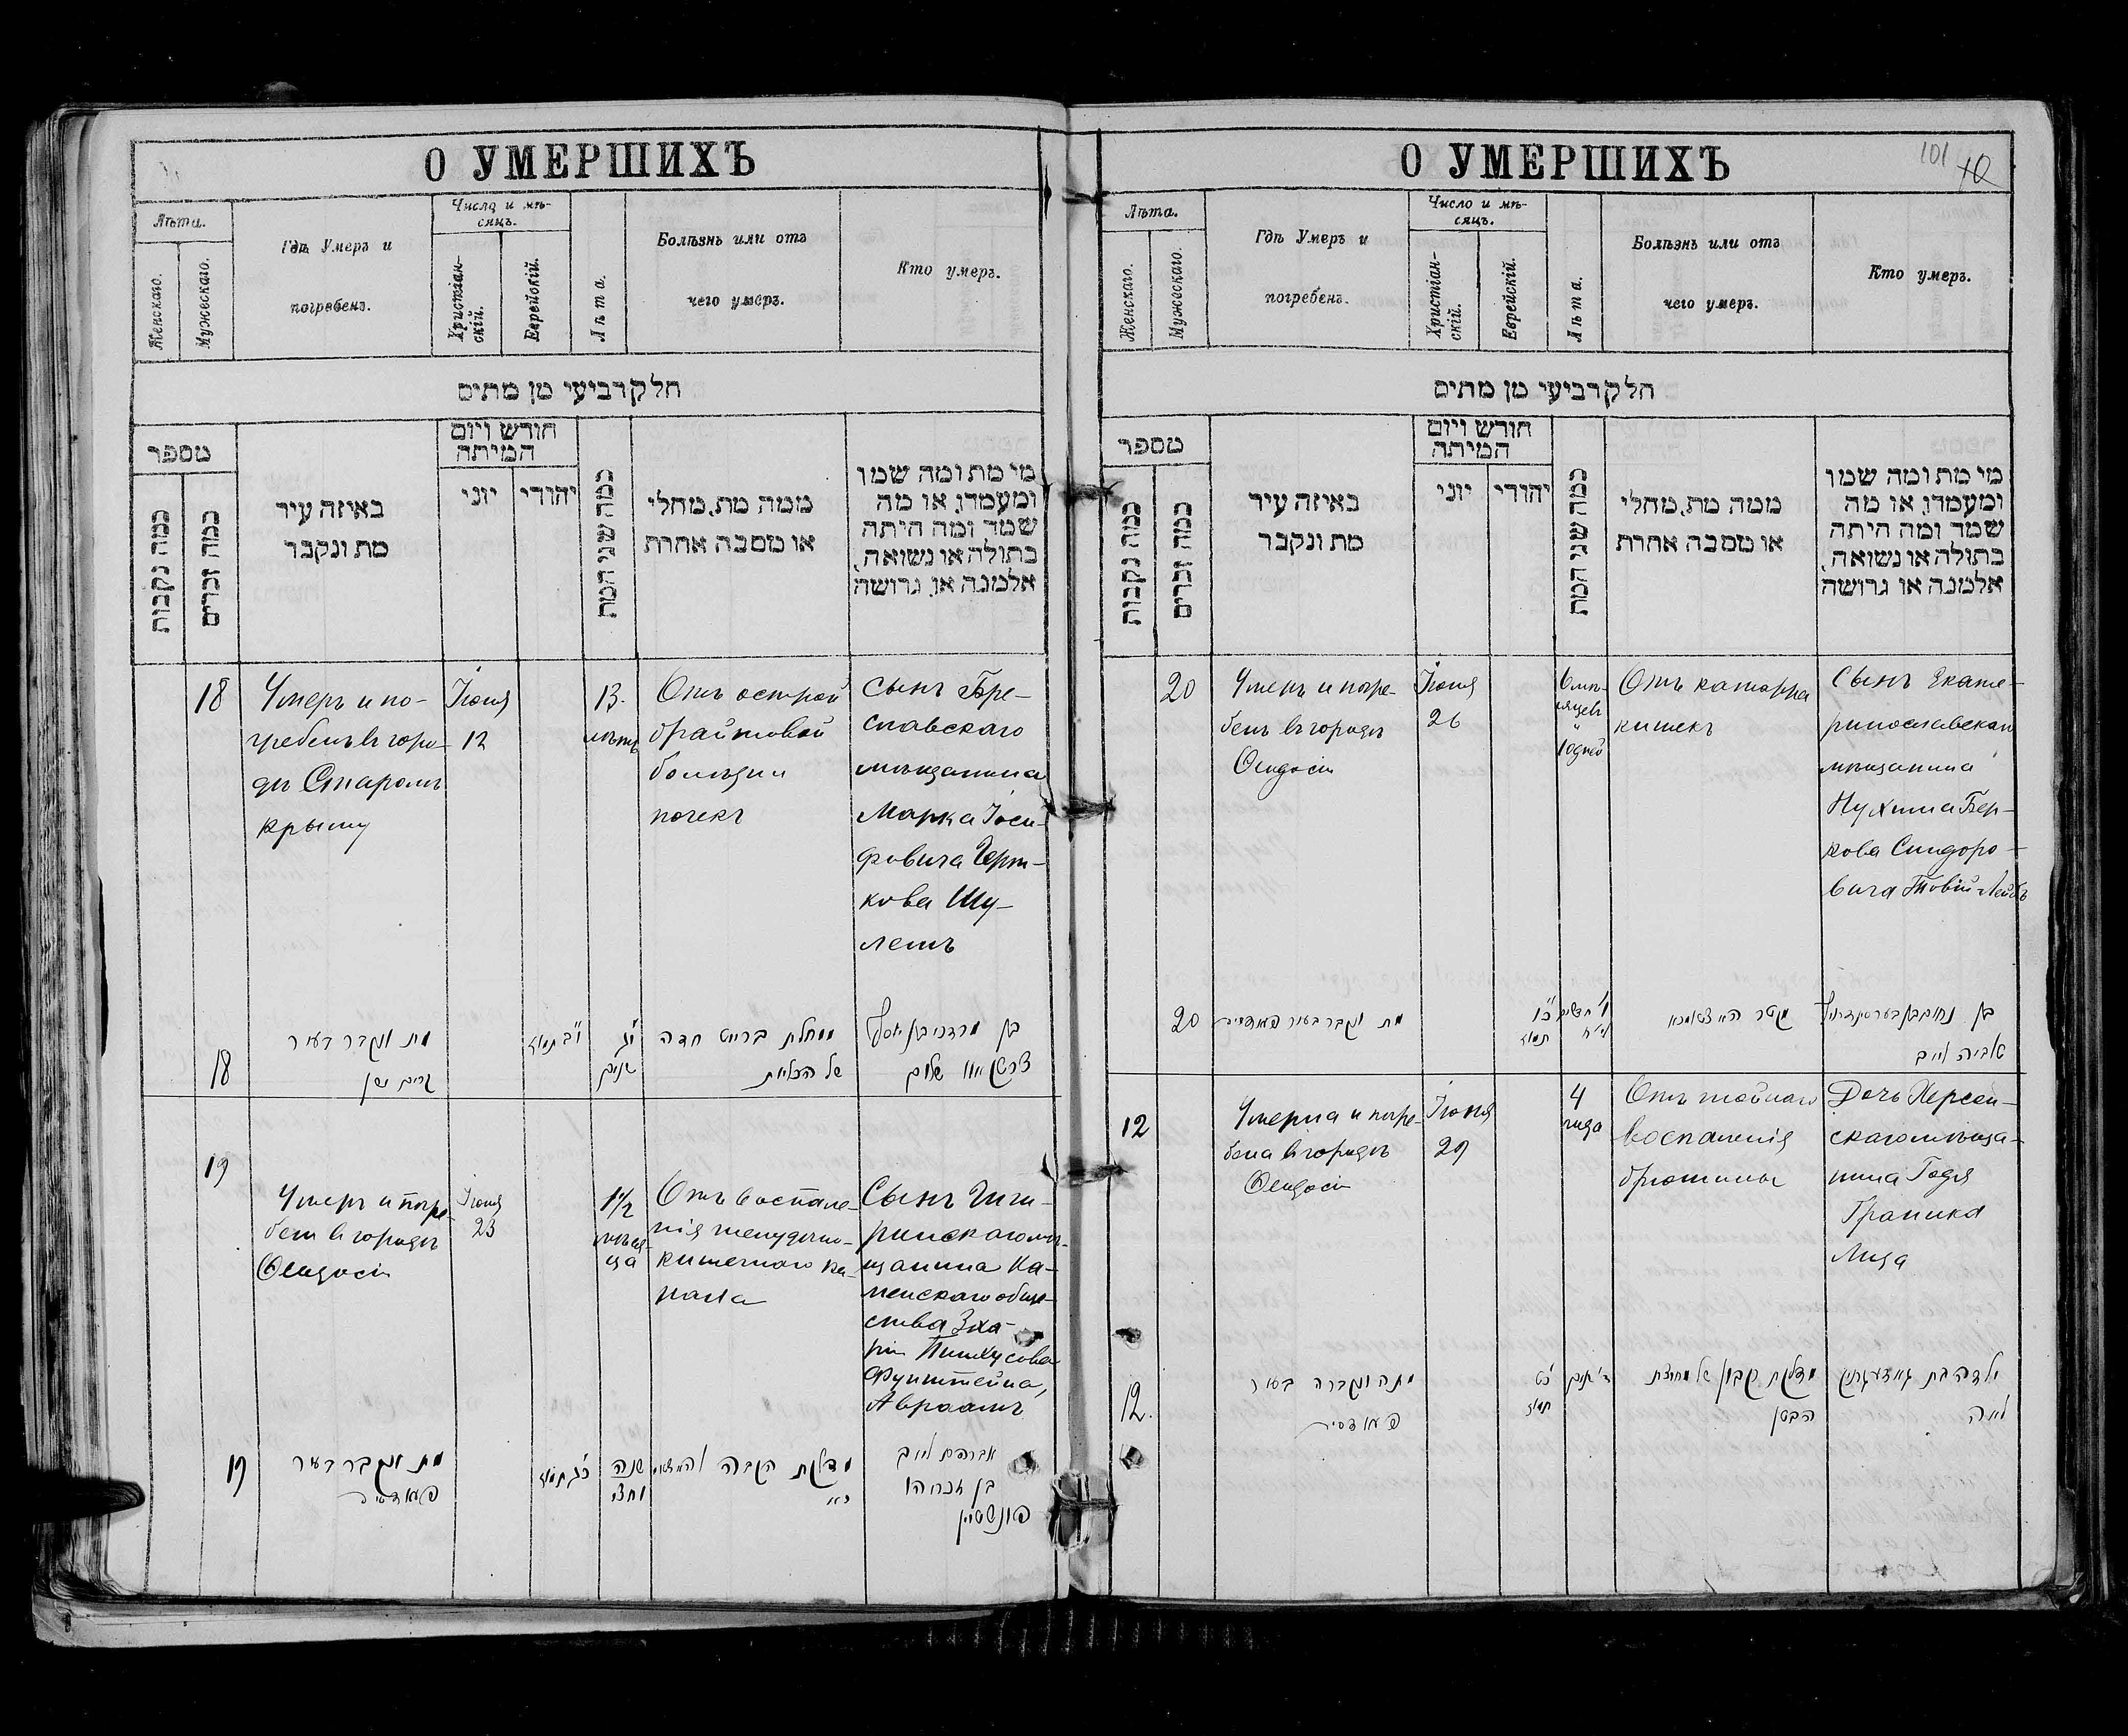 О УМЕРШИХЪ
Лѣта.
Женскаго.
Мужескаго.
Гдѣ Умеръ и
погребенъ.
Число и мѣ-
сяцъ.
Христіан-
скій.
Еврейскій.
Лѣта.
Болѣзнь или отъ
чего умеръ.
Кто умеръ.
חלק רביעי מן מתים
מספר
כמה נקבות
כמה זכרים
באיזה עיר
מת ונקבר
חורש ויום
המיתה
יוני
יהודי
כמה שני המת
ממה מת, מחלי
או מסבה אחרת
מי מת ומה שמו
ומעמדו, או מה
שמד ומה היתה
בתולה או נשואה,
אלמנה או גרושה
18
Умеръ и по-
гребенъ въ горо-
дѣ Старомъ
Крыму
Іюня
12
13.
лѣтъ
Отъ острой
брайтовой
болѣзни
почекъ
Сынъ Бре-
славскаго
мѣщанина
Марка Іоси-
фовича Черт-
кова Шу-
лемъ
18
מת ונקבר בעיר
קרים ישן
י"ב תמוז
י"ג
שנים
ממחלת ברייט חדה
של הכליות
בן מרדכי בן יוסף
שלום
19
Умеръ и погре-
бенъ въ городѣ
Ѳеодосіи
Іюня
23
1 1/2
мѣся-
ца
Отъ воспале-
нія желудочно-
кишечнаго ка-
нала
Сынъ Чиги-
ринскаго мѣ-
щанина Ка-
менскаго обще-
ства Зха-
ріи Пинхусова
Функштейна,
Авраамъ
19
מת ונקבר בעיר
פעאדסיי
כ"ג תמוז
שנה
וחצי
מדלקת הקבה
אברהם לייב
בן זכריהו
פונשטיין
О УМЕРШИХЪ
101
Лѣта.
Женскаго.
Мужескаго.
Гдѣ Умеръ и
погребенъ.
Число и мѣ-
сяцъ.
Христіан-
скій.
Еврейскій.
Лѣта.
Болѣзнь или отъ
чего умеръ.
Кто умеръ.
חלק רביעי מן מתים
מספר
כמה נקבות
כמה זכרים
באיזה עיר
מת ונקבר
חורש ויום
המיתה
יוני
יהודי
כמה שני המת
ממה מת, מחלי
או מסבה אחרת
מי מת ומה שמו
ומעמדו, או מה
שמד ומה היתה
בתולה או נשואה,
אלמנה או גרושה
20
Умеръ и погре-
бенъ въ городѣ
Ѳеодосіи
Іюня
26
6 мѣ-
сяцевъ
и
10 дней
Отъ катарра
кишекъ
Сынъ Екате-
ринославскаго
мѣщанина
Нухима Бер-
кова Сидоро-
вича Товій-Лейбъ
20
מת ונקבר בעיר
כ"ו
תמוז
ו' חדשים
בן נחום בן בער
טוביה לייב
12
Умерла и погре-
бена въ городѣ
Ѳеодосіи
Іюня
29
4
года
Отъ гнойнаго
воспаленія
брюшины
Дочь Херсон-
скаго мѣща-
нина Годя
Граника
Лиза
12.
מתה ונקברה בעיר
פעאדסיי
כ"ט
תמוז
ד' שנים
מדלקת
הבטן
ילדה בת